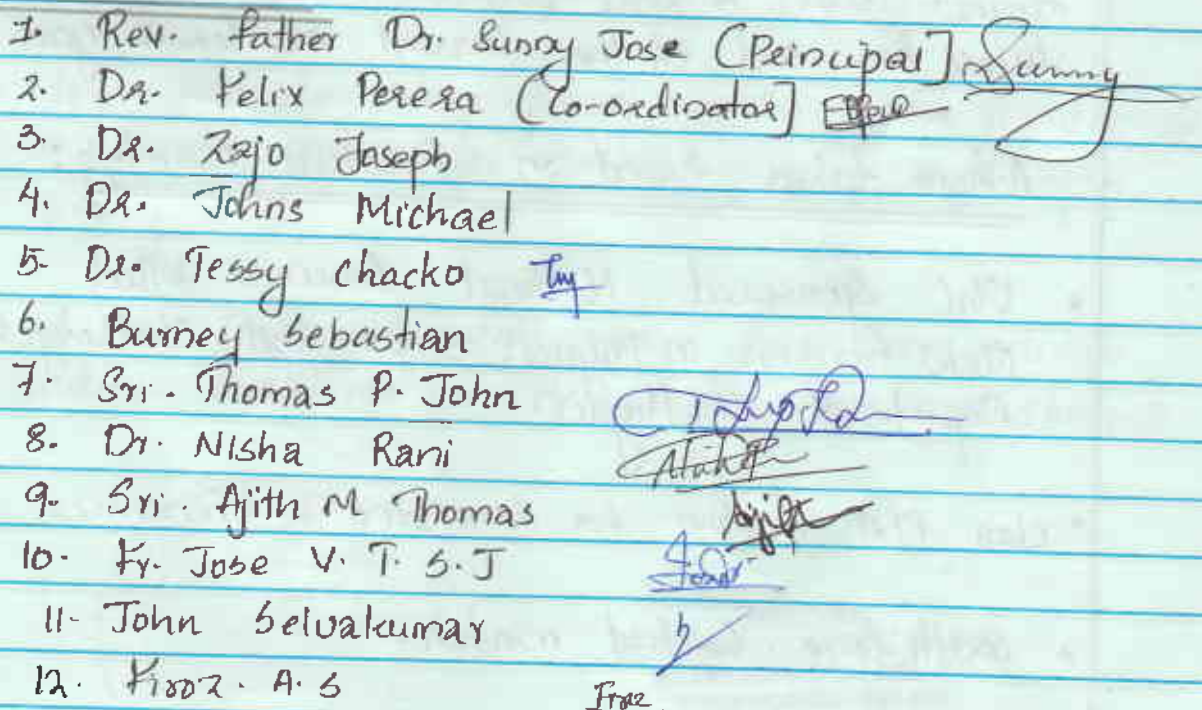 1. Rev. Father Dr. Sunny Jose (Principal] Sunny
2. Dr. Felix Perera (Co-ordinator]
3. Dr. Zajo Joseph
4. Dr. Johns Michael
5. Dr. Tessy Chacko
6. Burney Sebastian
7. Sri. Thomas P. John
8. Dr. Nisha Rani
9. Sri. Ajith M Thomas
10. Fr. Jose V. T. S.J
11. John Selvakumar
12. Firoz. A. S